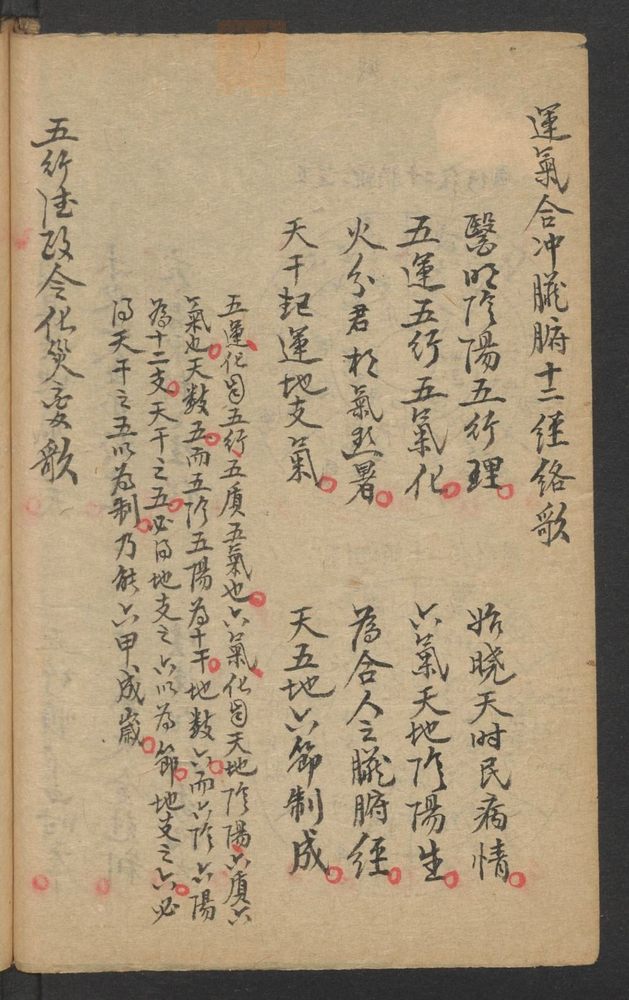 運氣合冲臟腑十二經絡歌
醫明陰陽五行理 始曉天時民病情
五運五行五氣化 六氣天地陰陽生
火分君相氣熱暑 為合人之臟腑經
天干起運地支氣 天五地六節制成
五運化自五行五質五氣也六氣化自天地陰陽六質六
氣也天數五而五陰五陽為十干地數六而六陰六陽
為十二支天干之五必得地支之六以為節地支之六必
得天干之五以為制乃能六甲成歲
五行德政令化災變歌